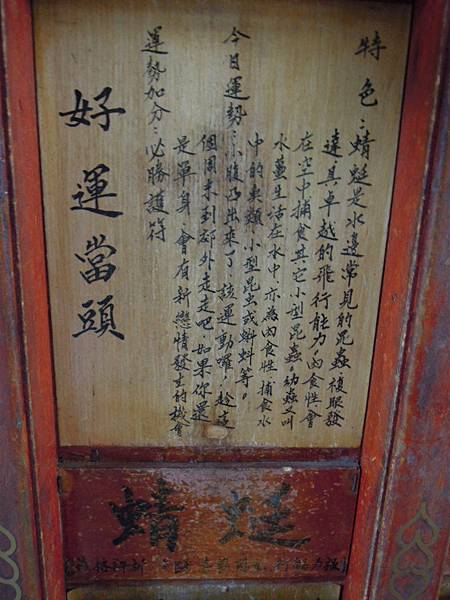 特色:蜻蜓是水邊常見的昆蟲,複眼發
達具卓越的飛行能力,肉食性,會
在空中捕食其它小型昆蟲。幼虫又叫
水蠆生活在水中,亦為肉食性,捕食水
中的魚類、小型昆虫或蝌蚪等。
今日運勢:小腹凸出來了,該運動囉!趁這
個周末到郊外走走吧,如果你還
是單身,會有新戀情發生的機會
運勢加分:必勝護符
好運當頭
蜻蜓